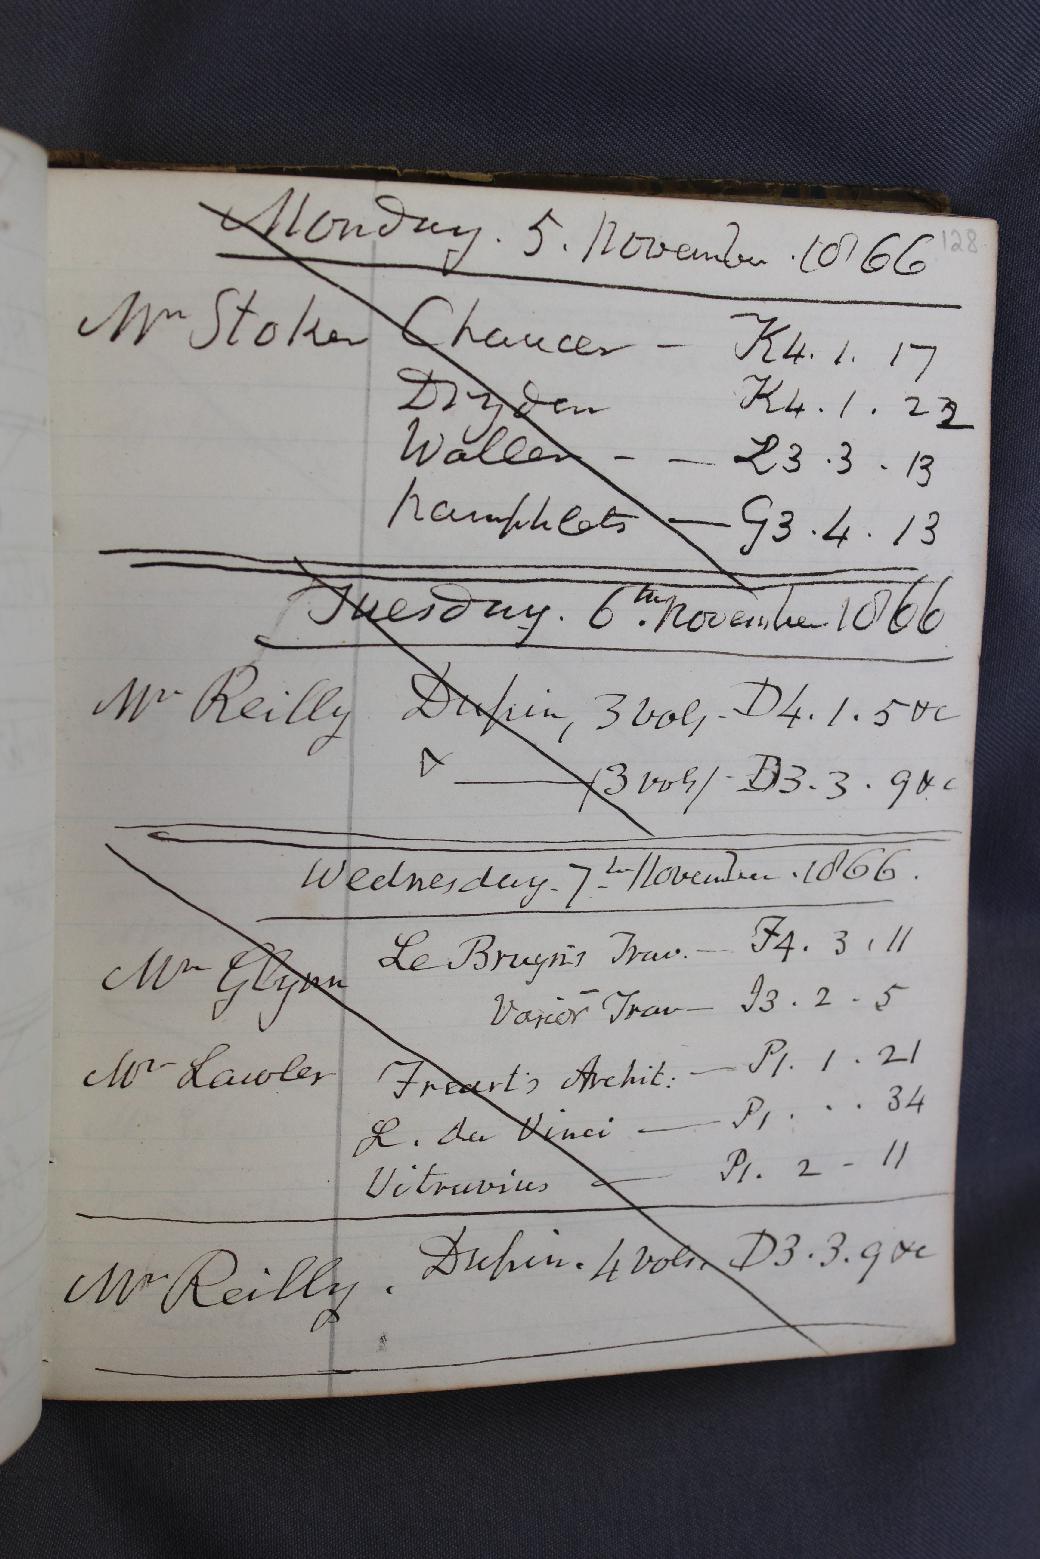 128
Monday. 5. November. 1866
Mr Stoker Chaucer - K4. 1. 17
Dryden K4. 1. 22
Waller - - L3. 3. 13
Pamphlets - G3. 4. 13
Tuesday. 6th November 1866
Mr Reilly Dupin, 3 vols - D4. 1. 5 &c
— 3 vols - D3. 3. 9 &c
Wednesday. 7th November. 1866.
Mr Glynn Le Bruyn's Trav. - F4. 3. 11
Trav - I3. 2. 5
Mr Lawler Freart's Archit: - P1. 1. 21
L. da Vinci - P1. . . 34
Vitruvius - P1. 2 - 11
Mr Reilly. Dupin. 4 vols. D3. 3. 9 &c